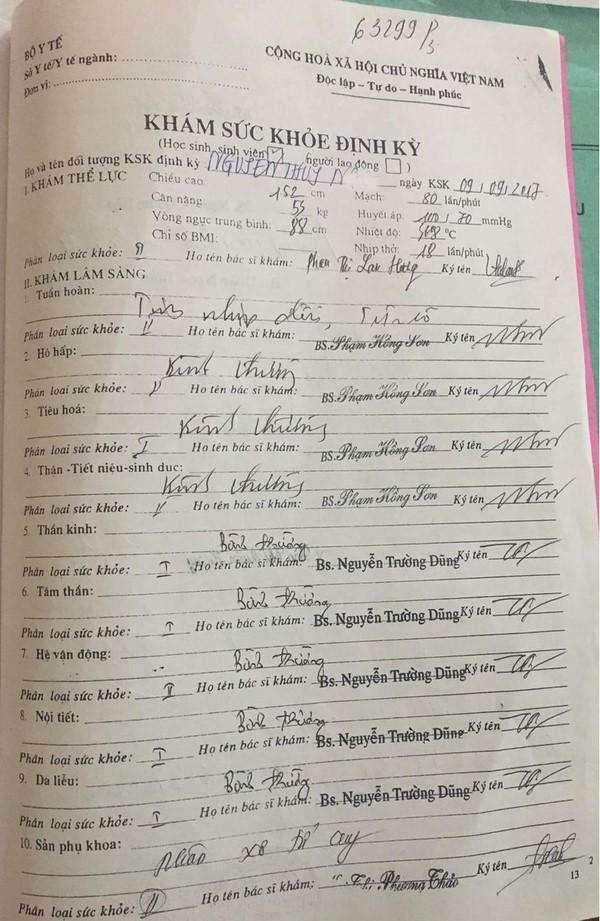 63299 P3
BỘ Y TẾ
Sở Y tế/Y tế ngành:
Đơn vị:
CỘNG HOÀ XÃ HỘI CHỦ NGHĨA VIỆT NAM
Độc lập – Tự do – Hạnh phúc
KHÁM SỨC KHỎE ĐỊNH KỲ
(Học sinh, sinh viên ☑ người lao động ☐ )
Họ và tên đối tượng KSK định kỳ NGUYỄN THUỲ N ngày KSK 09/09/2017
I. KHÁM THỂ LỰC Chiều cao: 152 cm Mạch: 80 lần/phút
Cân nặng: 55 kg Huyết áp: 100/70 mmHg
Vòng ngực trung bình: 88 cm Nhiệt độ: °C
Chỉ số BMI: Nhịp thở: 18 lần/phút
Phân loại sức khỏe: II Họ tên bác sĩ khám: Phan Thị Lan Hương Ký tên
II. KHÁM LÂM SÀNG
1. Tuần hoàn:
Tim nhịp đều,
Phân loại sức khỏe: Họ tên bác sĩ khám: BS. Phạm Hồng Sơn Ký tên
2. Hô hấp:
Bình thường
Phân loại sức khỏe: Họ tên bác sĩ khám: BS. Phạm Hồng Sơn Ký tên
3. Tiêu hoá:
Bình thường
Phân loại sức khỏe: I Họ tên bác sĩ khám: BS. Phạm Hồng Sơn Ký tên
4. Thận -Tiết niệu-sinh dục:
Bình thường
Phân loại sức khỏe: Họ tên bác sĩ khám: BS. Phạm Hồng Sơn Ký tên
5. Thần kinh:
Bình thường
Phân loại sức khỏe: I Họ tên bác sĩ khám: Bs. Nguyễn Trường Dũng Ký tên
6. Tâm thần:
Bình thường
Phân loại sức khỏe: I Họ tên bác sĩ khám: Bs. Nguyễn Trường Dũng Ký tên
7. Hệ vận động:
Bình thường
Phân loại sức khỏe: II Họ tên bác sĩ khám: Bs. Nguyễn Trường Dũng Ký tên
8. Nội tiết:
Bình thường
Phân loại sức khỏe: I Họ tên bác sĩ khám: Bs. Nguyễn Trường Dũng Ký tên
9. Da liễu:
Bình thường
Phân loại sức khỏe: I Họ tên bác sĩ khám: Bs. Nguyễn Trường Dũng Ký tên
10. Sản phụ khoa:
Phân loại sức khỏe: II Họ tên bác sĩ khám: Phương Thảo Ký tên
13 2